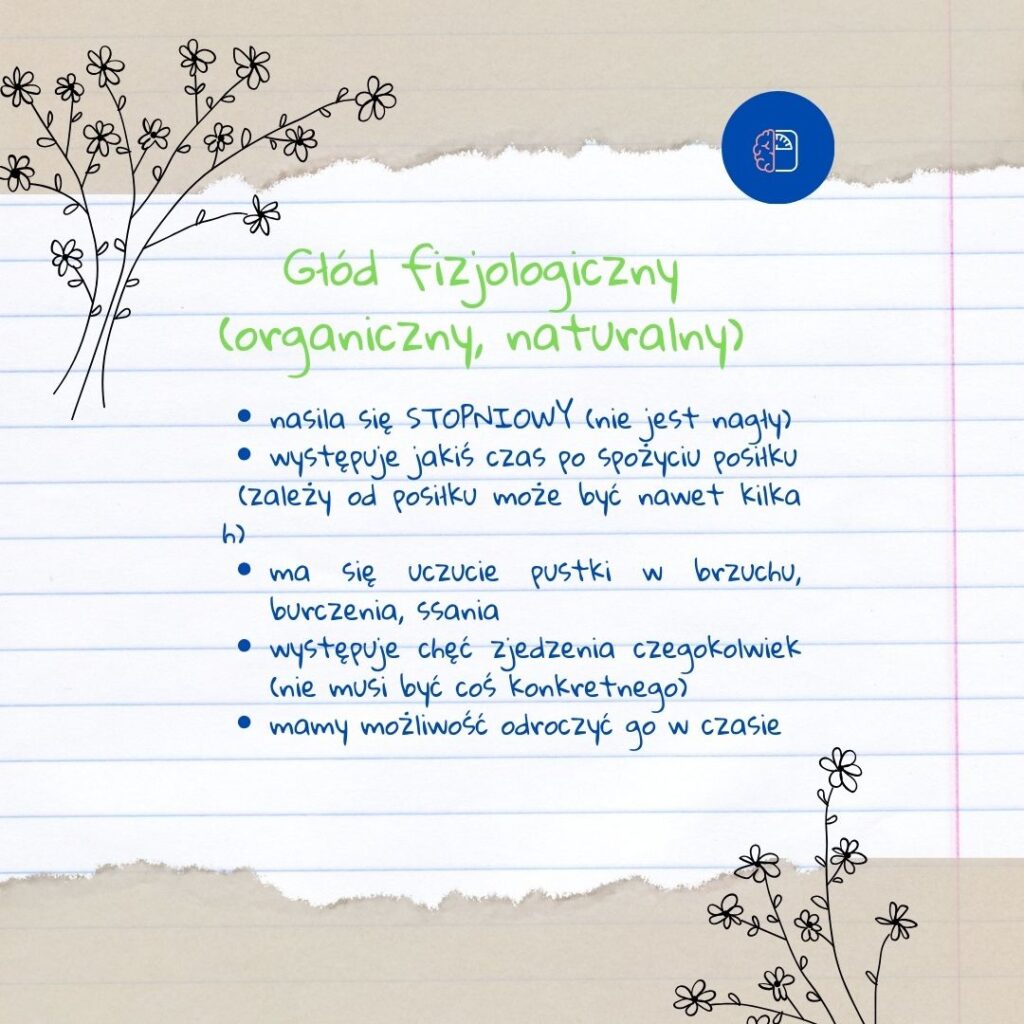 Głód fizjologiczny
(organiczny, naturalny)
• nasila się STOPNIOWY (nie jest nagły)
• występuje jakiś czas po spożyciu posiłku
(zależy od posiłku może być nawet kilka
h)
• ma się uczucie pustki w brzuchu,
burczenia, ssania
• występuje chęć zjedzenia czegokolwiek
(nie musi być coś konkretnego)
• mamy możliwość odroczyć go w czasie